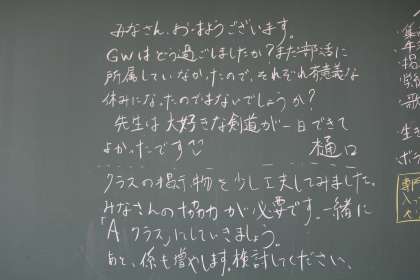 みなさん、おはようございます。
GWはどう過ごしましたか？まだ部活に
所属していなかったので、それぞれ有意義な
休みになったのではないでしょうか？
先生は大好きな剣道が一日できて
よかったです
樋口
クラスの掲示物を少し工夫してみました。
みなさんの協力が必要です。一緒に
「Aクラス」にしていきましょう。
あと、係も増やします。検討してください、